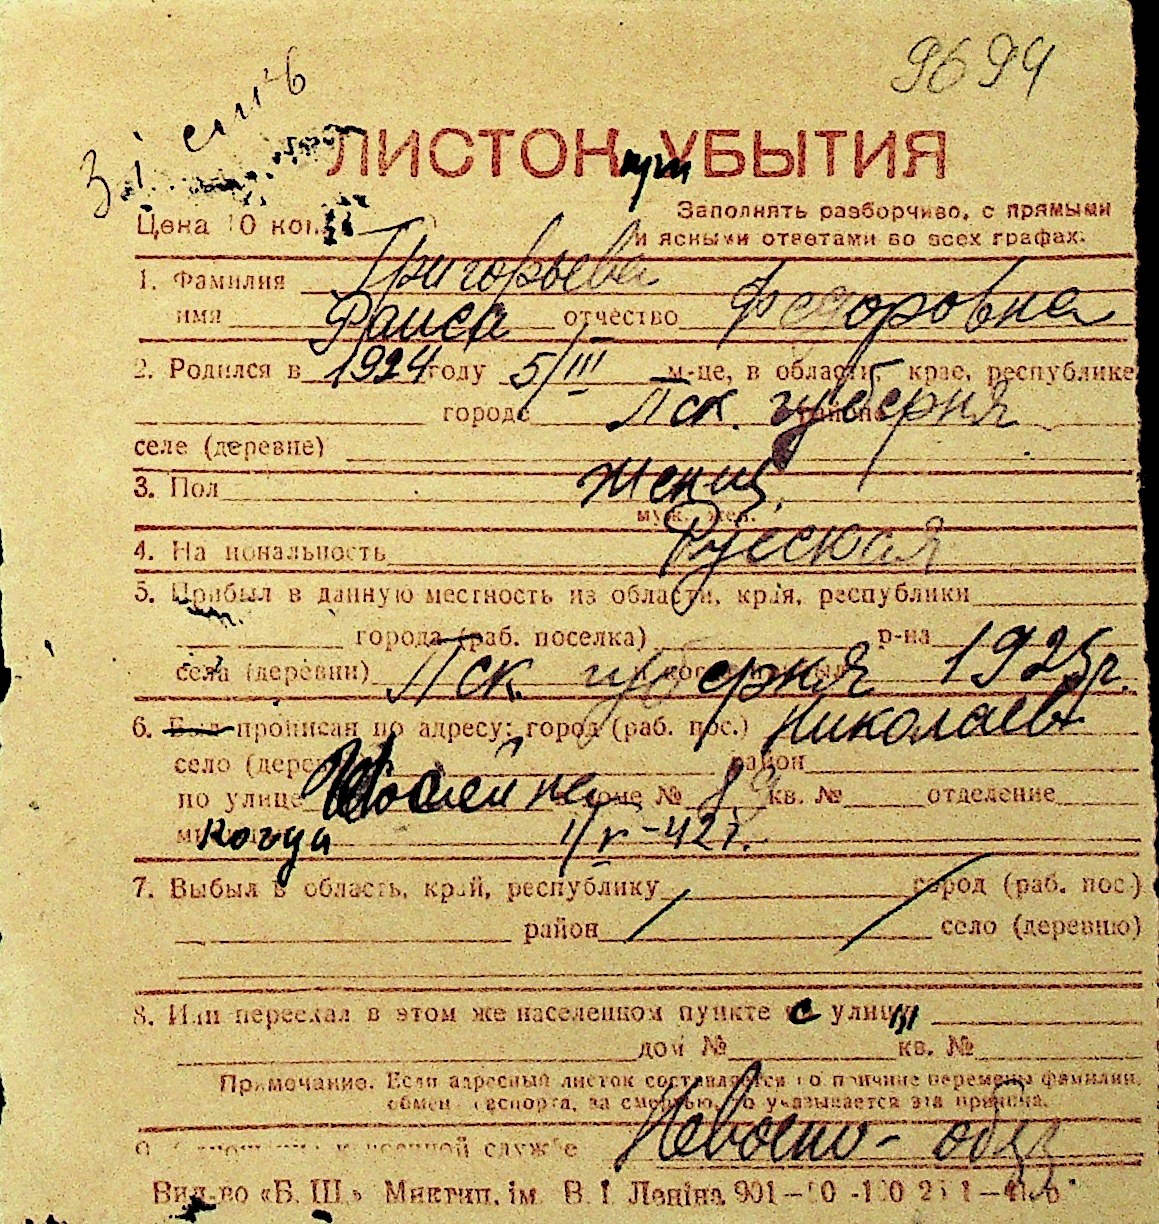 9694
ЛИСТОК при УБЫТИЯ
Цена 10 коп.
Заполнять разборчиво, с прямыми
и ясными ответами во всех графах.
1. Фамилия Григорьева
имя Раиса отчество Федоровна
2. Родился в 1924 году 5/III м-це, в области, крае, республике
городе Пск. губерня района
селе (деревне)
3. Пол женщ.
муж. жен.
4. Национальность Русская
5. Прибыл в данную местность из области, края, республики
города (раб. поселка) р-на
села (деревни) Пск. губерня 1925 г.
6. Был прописан по адресу: город (раб. пос.) Николаев
село (дерев район
по улице доме № 89 кв. № отделение
когда 1/V-42 г.
7. Выбыл в область, край, республику город (раб. пос.)
район село (деревню)
8. Или переехал в этом же населенном пункте с улицы
дом № кв. №
Примечание. Если адресный листок составляется по причине перемены фамилии,
обмена паспорта, за смертью, то указывается эта причина.
военной службе Невоенно-обяз.
Вид-во «Б. Ш.» Миктип. ім. В. І. Леніна 901